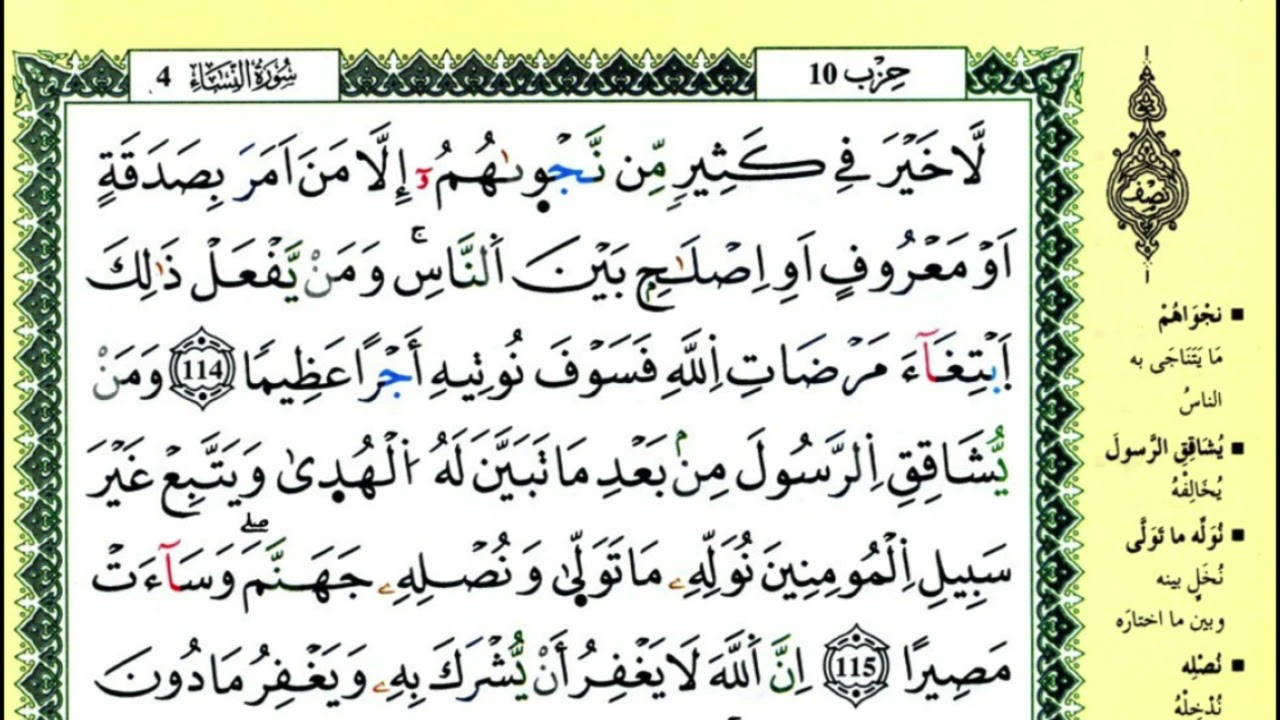 سُورَةُ النِّسَاءِ 4
حِزْب 10
لَّا خَيْرَ فِي كَثِيرٍ مِّن نَّجْوٜىٰهُمُۥٓ إِلَّا مَنَ اَمَرَ بِصَدَقَةٍ
اَوْ مَعْرُوفٍ اَوِ اِصْلَٰحِۢ بَيْنَ اَ۬لنَّاسِۚ وَمَنْ يَّفْعَلْ ذَٰلِكَ
اَ۪بْتِغَآءَ مَرْضَاتِ اِ۬للَّهِ فَسَوْفَ نُوتِيهِ أَجْرًا عَظِيمًا 114 وَمَنْ
يُّشَاقِقِ اِ۬لرَّسُولَ مِنۢ بَعْدِ مَا تَبَيَّنَ لَهُ اُ۬لْهُدٜىٰ وَيَتَّبِعْ غَيْرَ
سَبِيلِ اِ۬لْمُومِنِينَ نُوَلِّهِۦ مَا تَوَلّٜىٰ وَنُصْلِهِۦ جَهَنَّمَۖ وَسَآءَتْ
مَصِيرًا 115 اِنَّ اَ۬للَّهَ لَا يَغْفِرُ أَنْ يُّشْرَكَ بِهِۦ وَيَغْفِرُ مَا دُونَ
نِصْف
نجْوَاهُمْ
مَا يَتَنَاجَى به
الناسُ
يُشاقِقِ الرَّسولَ
يُخَالِفْهُ
نُوَلِّه ما تَوَلَّى
نُخَلِّ بينه
وبين ما اختارَه
نُصْلِه
نُدْخِلْهُ